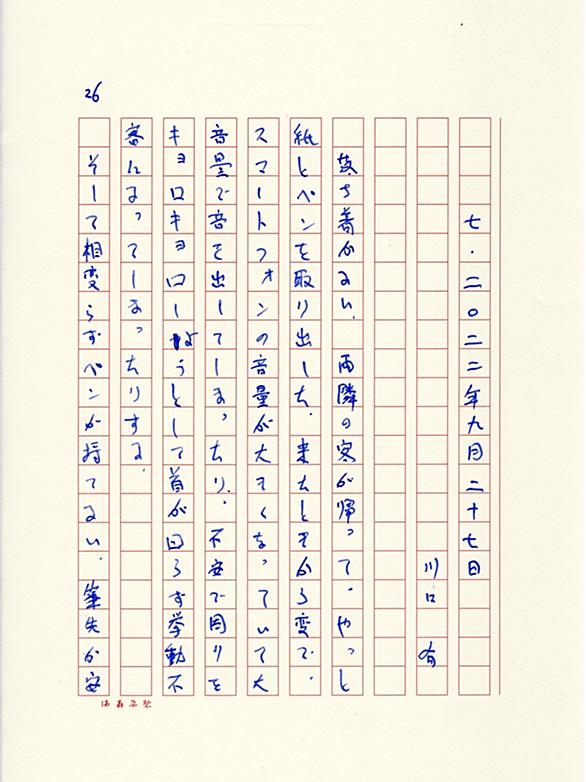 26
七・二〇二二年九月二十七日
川口 有
落ち着かない。 両隣の客が帰って、やっと
紙とペンを取り出した。来たときから変で、
スマートフォンの音量が大きくなっていて大
音量で音を出してしまったり、不安で周りを
キョロキョロしようとして首が回らず挙動不
審になってしまったりする。
そして相変らずペンが持てない。筆先が安